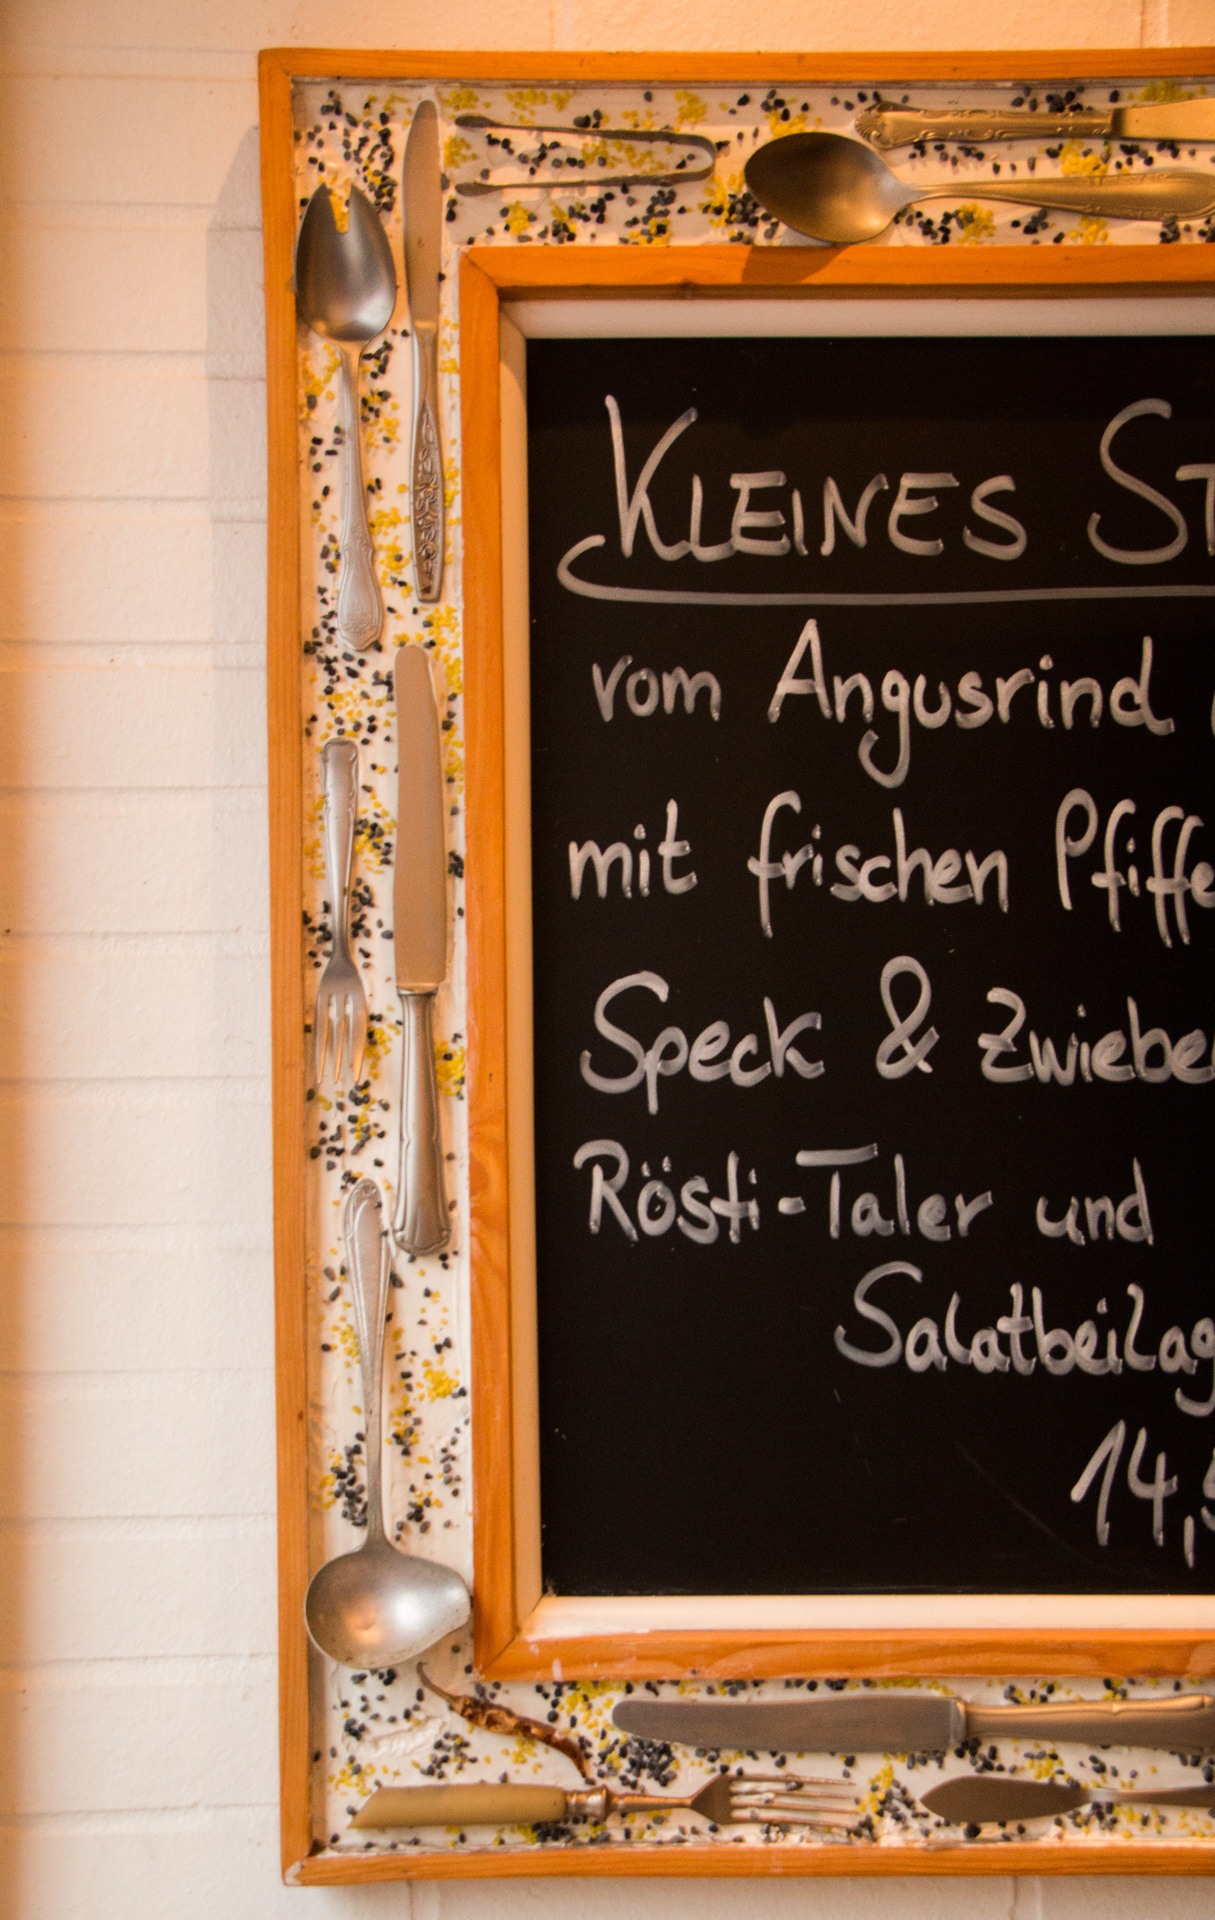 KLEINES ST
vom Angusrind
mit frischen Pfiffe
Speck & Zwiebe
Rösti-Taler und
Salatbeilag
14,5